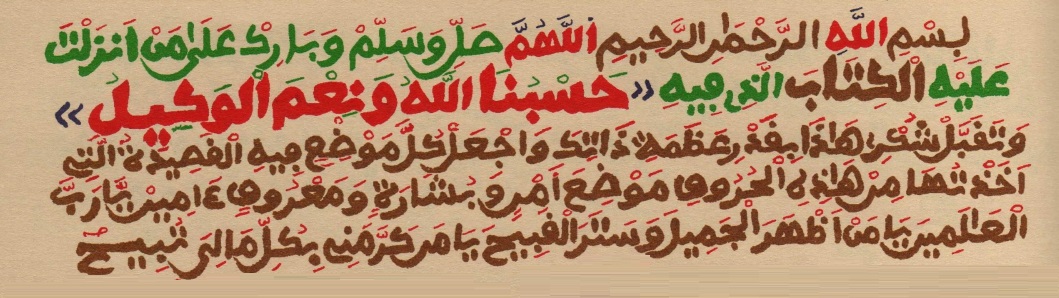 بِسْمِ اللَّهِ الرَّحْمَٰنِ الرَّحِيمِ اللَّهُمَّ صَلِّ وَسَلِّمْ وَبَارِكْ عَلَىٰ مَنْ اَنزَلْتَ
عَلَيْهِ الْكِتَابَ الَّذِي فِيهِ «حَسْبُنَا اللَّهُ وَنِعْمَ الْوَكِيلُ»
وَتَقَبَّلْ شُكْرِ هَٰذَا بِقَدْرِ عَظَمَةِ ذَاتِكَ وَاجْعَلْ كُلَّ مَوْضِعٍ فِيهِ الْقَصِيدَةُ الَّتِي
اَخَذْتُهَا مِنْ هَٰذِهِ الْحُرُوفِ مَوْضِعَ اَمْرٍ وَبِشَارَةٍ وَمَعْرُوفٍ ءَامِينَ يَا رَبَّ
الْعَٰلَمِينَ يَا مَنْ اَظْهَرَ الْجَمِيلَ وَسَتَرَ الْقَبِيحَ يَا مَن كَرَّمَنِي بِكُلِّ مَا لِي تُبِيحُ